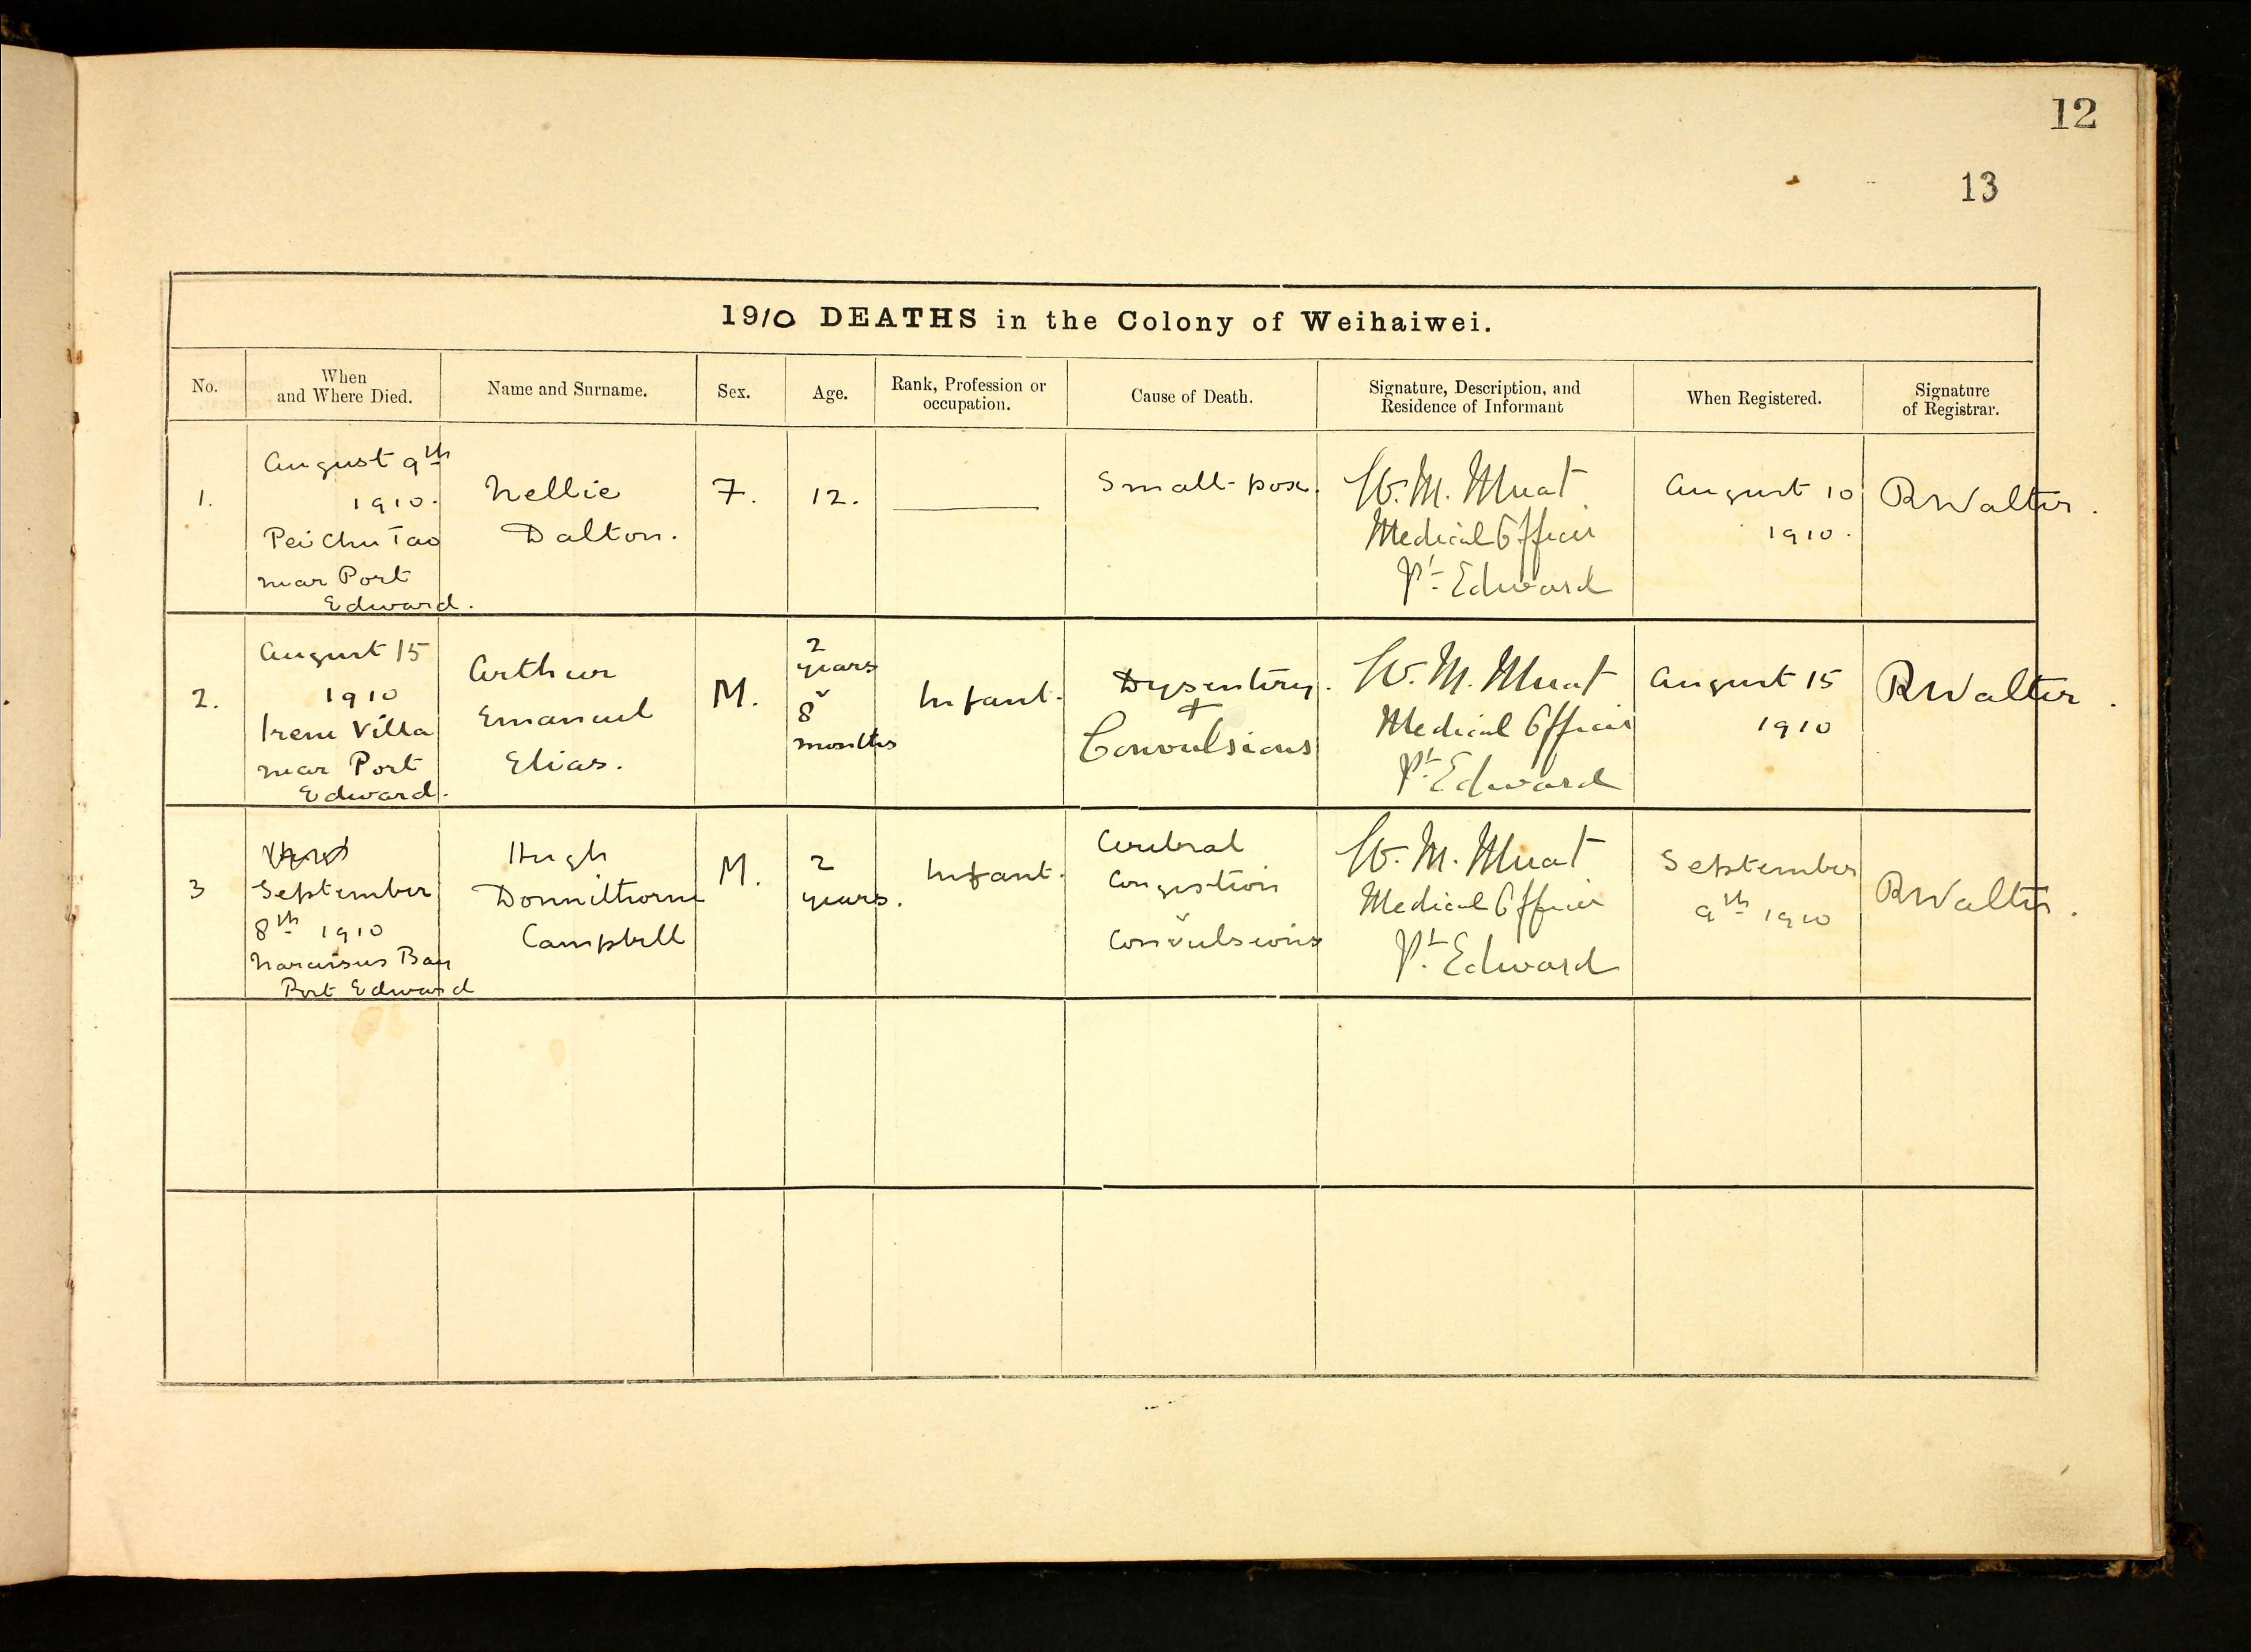 12
13
1910 DEATHS in the Colony of Weihaiwei.
No.
When
and Where Died.
Name and Surname.
Sex.
Age.
Rank, Profession or
occupation.
Cause of Death.
Signature, Description, and
Residence of Informant
When Registered.
Signature
of Registrar.
1.
August 9th
1910.
Pei Chu Tao
near Port
Edward.
Nellie
Dalton.
F.
12.
Small-pox.
W. M. Muat
Medical Officer
Pt. Edward
August 10
1910.
R Walter.
2.
August 15
1910
Irene Villa
near Port
Edward.
Arthur
Emanuel
Elias.
M.
2
years
8
months
Infant.
Dysentery.
+
Convulsions
W. M. Muat
Medical Officer
Pt. Edward
August 15
1910
R Walter.
3
September
8th 1910
Narcissus Bay
Port Edward
Hugh
Donnithorne
Campbell
M.
2
years.
Infant.
Cerebral
Congestion
Convulsions
W. M. Muat
Medical Officer
Pt. Edward
September
9th 1910
R Walter.